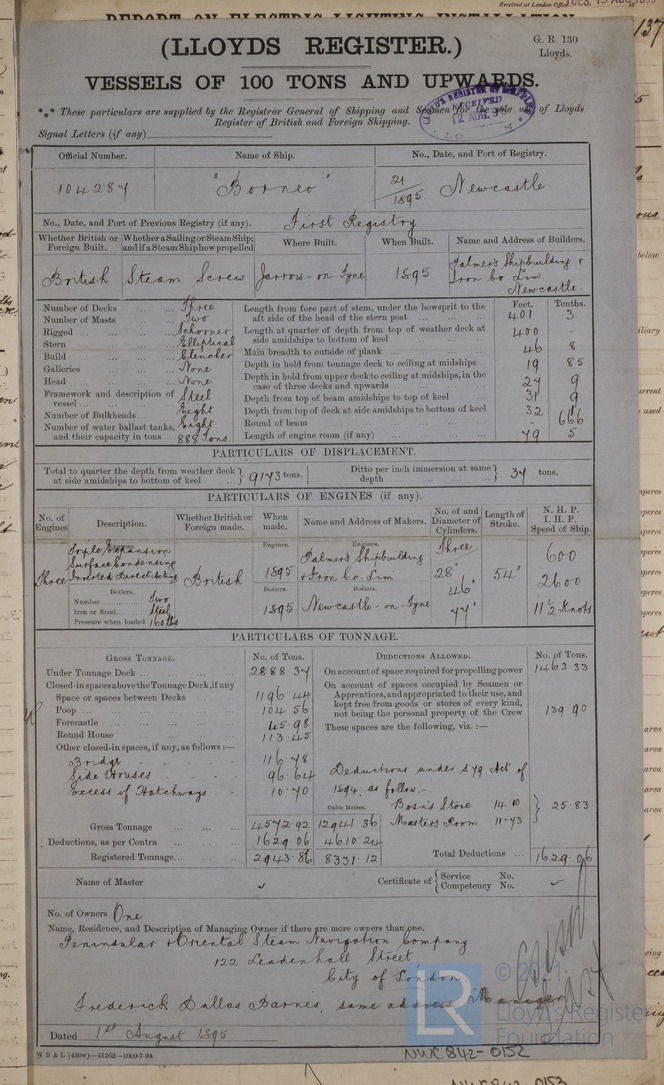 REPORT ON ELECTRIC LIGHTING INSTALLATION
Received at London Office
137
(LLOYDS REGISTER.)
G. R 130
Lloyds.
VESSELS OF 100 TONS AND UPWARDS.
*** These particulars are supplied by the Registrar General of Shipping and Seamen for the sole use of Lloyds
Register of British and Foreign Shipping.
LLOYD'S REGISTER OF SHIPPING
RECEIVED
12 AUG. 95
Signal Letters (if any)
Official Number. Name of Ship. No., Date, and Port of Registry.
104287 "Borneo" 21/1895 Newcastle
No., Date, and Port of Previous Registry (if any). First Registry
Whether British or Foreign Built. Whether a Sailing or Steam Ship; and if a Steam Ship how propelled Where Built. When Built. Name and Address of Builders.
British Steam Screw Jarrow-on-Tyne 1895 Palmer's Shipbuilding & Iron Co Lim. Newcastle.
Number of Decks Three
Number of Masts Two
Rigged Schooner
Stern Elliptical
Build Clencher
Galleries None
Head None
Framework and description of vessel Steel
Number of Bulkheads Eight
Number of water ballast tanks, and their capacity in tons Eight 888 Tons
Feet. Tenths.
Length from fore part of stem, under the bowsprit to the aft side of the head of the stern post 401 3
Length at quarter of depth from top of weather deck at side amidships to bottom of keel 400
Main breadth to outside of plank 46 8
Depth in hold from tonnage deck to ceiling at midships 19 85
Depth in hold from upper deck to ceiling at midships, in the case of three decks and upwards 27 9
Depth from top of beam amidships to top of keel 31 9
Depth from top of deck at side amidships to bottom of keel 32 1
Round of beam - 666
Length of engine room (if any) 79 5
PARTICULARS OF DISPLACEMENT.
Total to quarter the depth from weather deck at side amidships to bottom of keel 9173 tons. Ditto per inch immersion at same depth 37 tons.
PARTICULARS OF ENGINES (if any).
No. of Engines Description. Whether British or Foreign made. When made. Name and Address of Makers. No. of and Diameter of Cylinders. Length of Stroke. N. H. P. I. H. P. Speed of Ship.
Three Triple Expansion Surface Condensing Inverted Direct Acting British
Engines. 1895 Engines. Palmer's Shipbuilding & Iron Co Lim Three 28" 46" 77" 54" 600 2600 11½ Knots
Boilers. Number Two
Iron or Steel Steel
Pressure when loaded 160 lbs
Boilers. 1895 Boilers. Newcastle-on-Tyne
PARTICULARS OF TONNAGE.
GROSS TONNAGE. No. of Tons. DEDUCTIONS ALLOWED. No. of Tons.
Under Tonnage Deck 2888 37
Closed-in spaces above the Tonnage Deck, if any
Space or spaces between Decks 1196 44
Poop 104 56
Forecastle 45.98
Round House 113.45
Other closed-in spaces, if any, as follows:—
Bridge 116.78
Side Houses 96.64
Excess of Hatchways 10.70
Cubic Metres.
Gross Tonnage 4572.92 12941.36
Deductions, as per Contra 1629 06 4610.24
Registered Tonnage 2943.86 8331.12
On account of space required for propelling power 1463.33
On account of spaces occupied by Seamen or Apprentices, and appropriated to their use, and kept free from goods or stores of every kind, not being the personal property of the Crew 139.90
These spaces are the following, viz.:—
Deductions under S 79 Act of
1894, as follow:-
Bosn's Store 14.10
Masters Room 11.73
25.83
Total Deductions 1629.06
Name of Master ✓ Certificate of Service No. Competency No. ✓
No. of Owners One
Name, Residence, and Description of Managing Owner if there are more owners than one.
Peninsular & Oriental Steam Navigation Company
122 Leadenhall Street,
City of London
Frederick Dallas Barnes, same address Manager
Dated 1st August 1895
W B & L (439w)—41262—1000-7-94
© 2021
LR
Lloyd's Register
Foundation
NWC842-0152
NWC842-0153